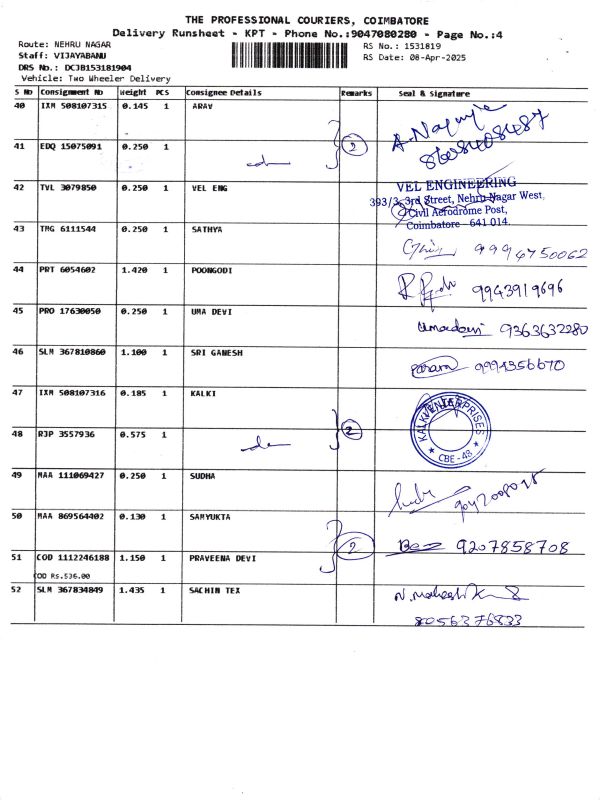 THE PROFESSIONAL COURIERS, COIMBATORE
Delivery Runsheet - KPT - Phone No.:9047080280 - Page No.:4
Route: NEHRU NAGAR
RS No.: 1531819
Staff: VIJAYABANU
RS Date: 08-Apr-2025
DRS No.: DCJB153181904
Vehicle: Two Wheeler Delivery
S No Consignment No Weight PCS Consignee Details Remarks Seal & Signature
40 IXM 508107315 0.145 1 ARAV
8608408487
41 EDQ 15075091 0.250 1 2
42 TVL 3079850 0.250 1 VEL ENG
VEL ENGINEERING
393/3, 3rd Street, Nehru Nagar West,
Civil Aerodrome Post,
Coimbatore - 641 014.
43 TMG 6111544 0.250 1 SATHYA
9994750062
44 PRT 6054602 1.420 1 POONGODI
9943919696
45 PRO 17630050 0.250 1 UMA DEVI
Umadevi 9363632280
46 SLM 367810860 1.100 1 SRI GANESH
9994356670
47 IXM 508107316 0.185 1 KALKI
KALKI ENTERPRISES
CBE - 48
48 RJP 3557936 0.575 1 2
49 MAA 111069427 0.250 1 SUDHA
50 MAA 869564402 0.130 1 SAMYUKTA
2 9207858708
51 COD 1112246188 1.150 1 PRAVEENA DEVI
COD Rs.536.00
52 SLM 367834849 1.435 1 SACHIN TEX
8056376833